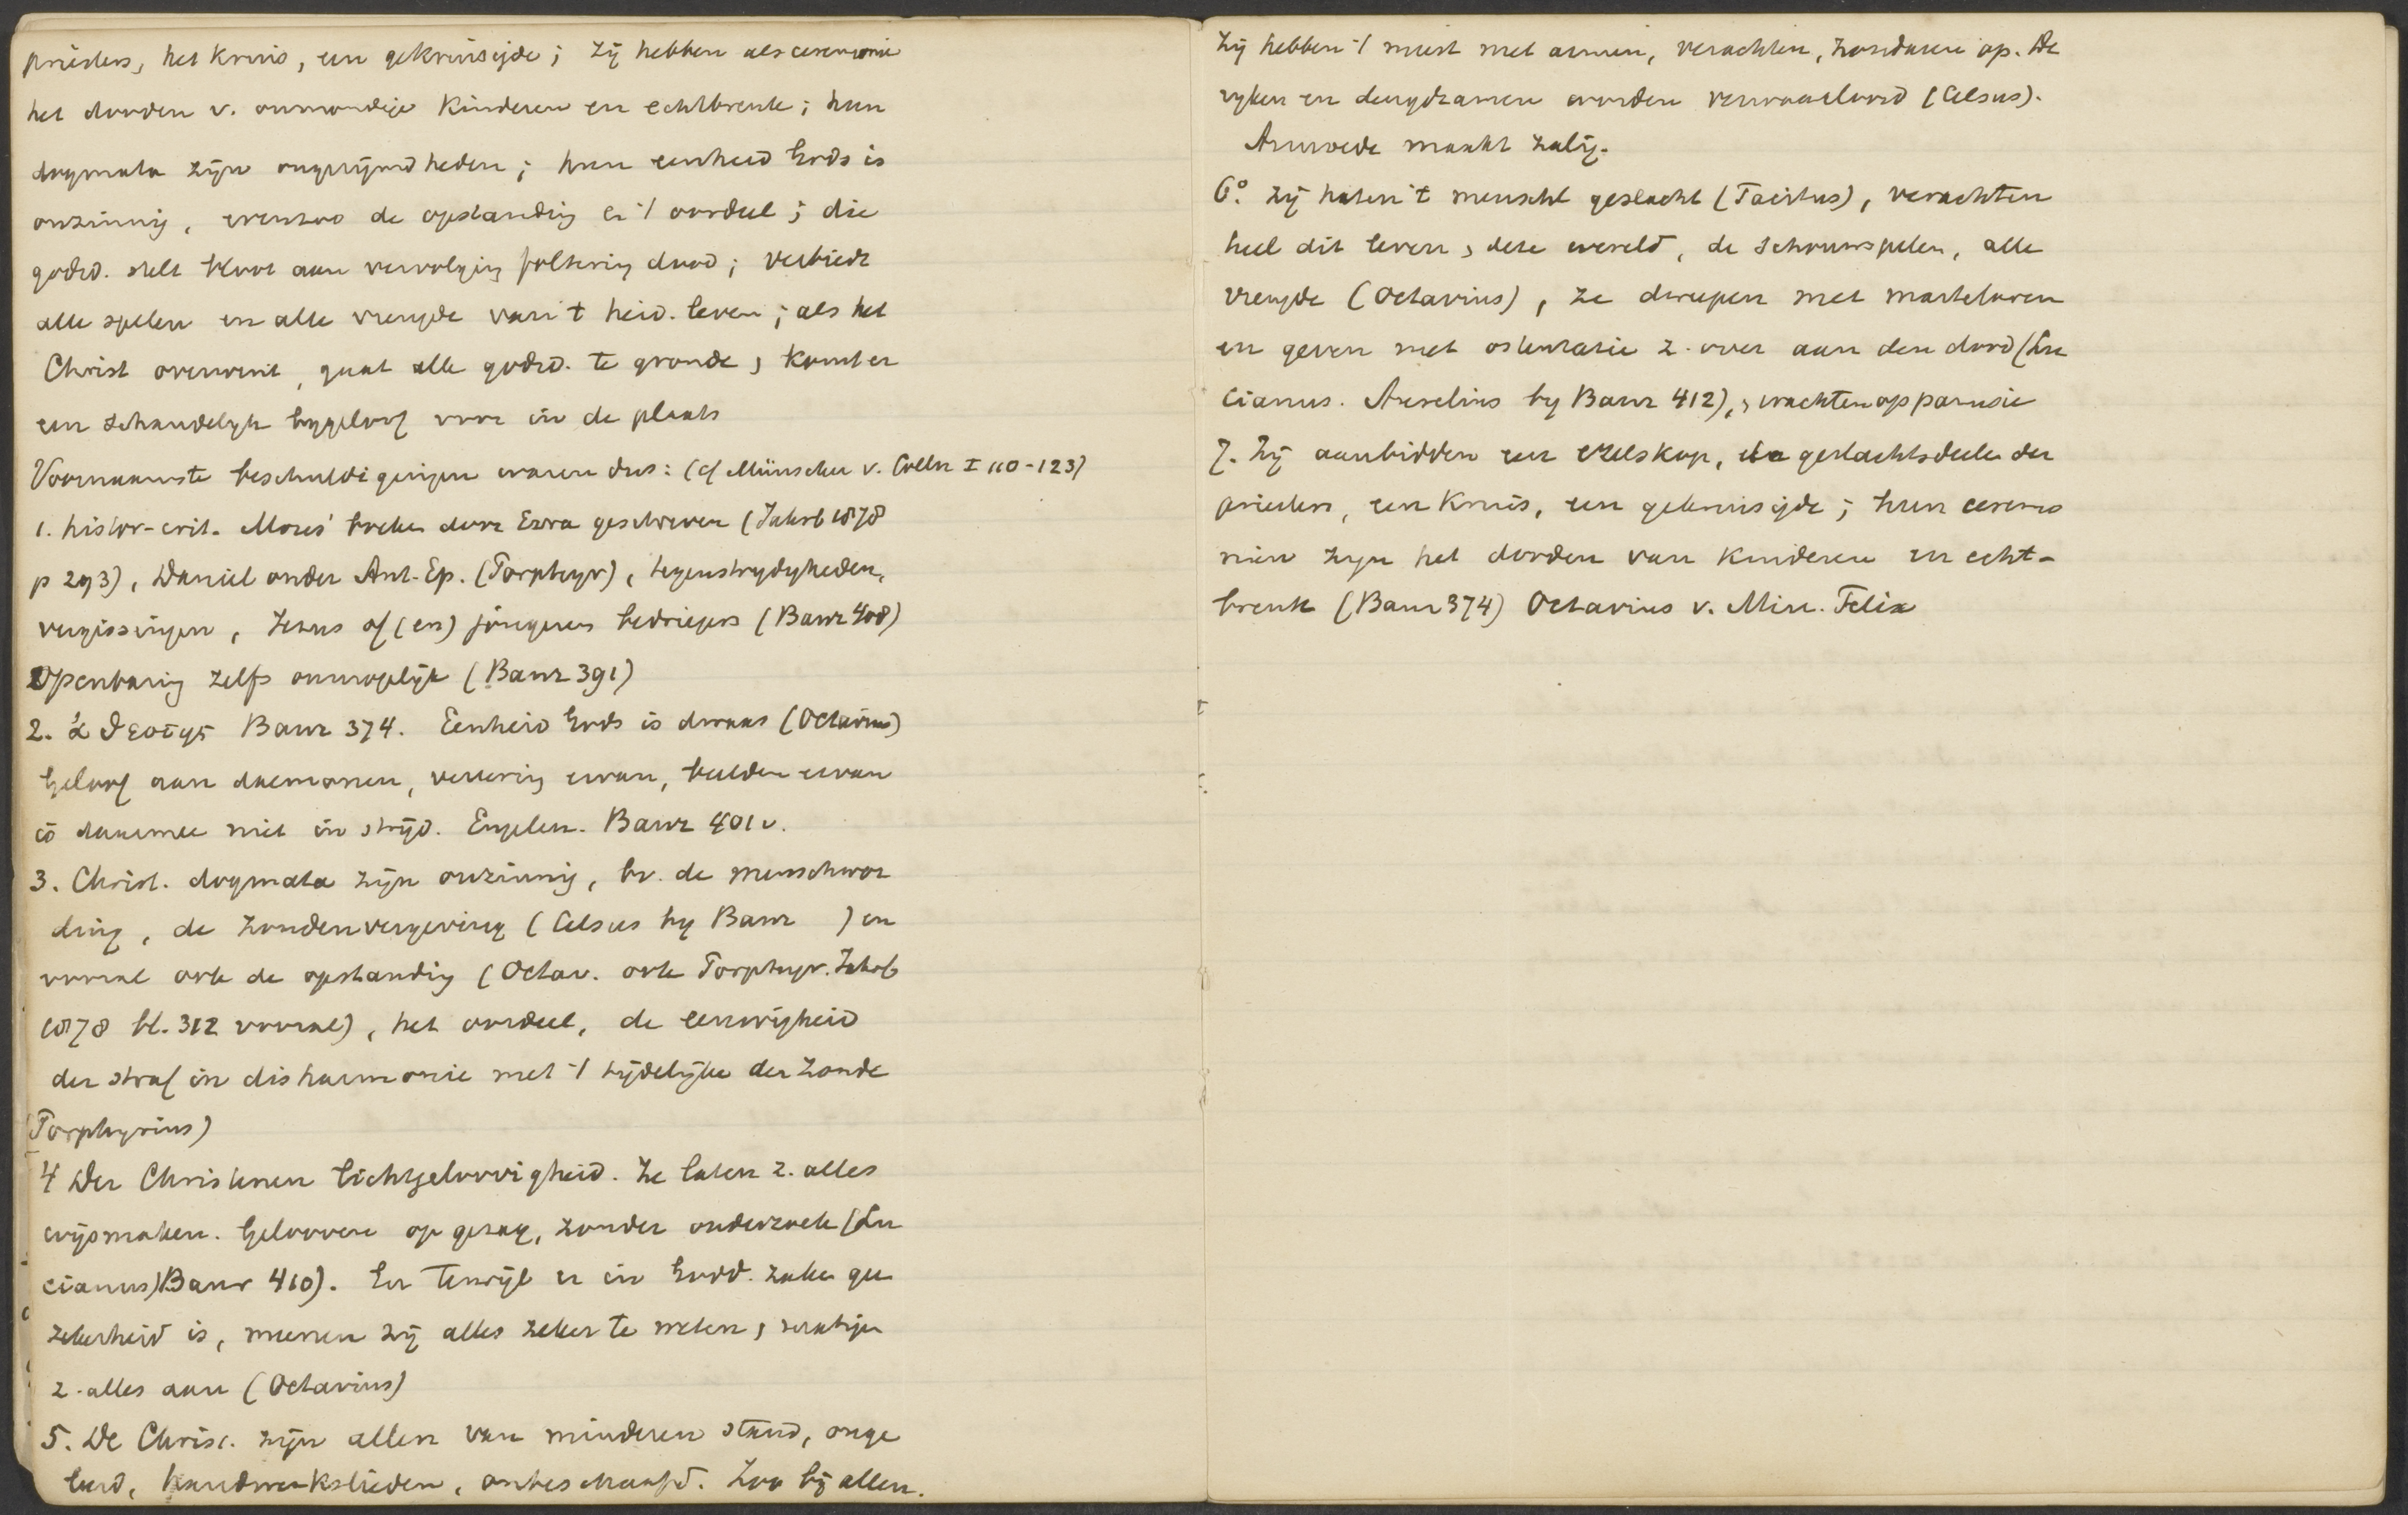 priesters, het kruis, een gekruisigde; zij hebben als ceremonie
het dooden v. onmondige kinderen en echtbreuk; hun
dogmata zijn ongerijmdheden; hun eenheid Gods is
onzinnig, evenzoo de opstanding en 't oordeel; die
godsd. stelt bloot aan vervolging foltering dood; verbiedt
alle spelen en alle vreugde van 't heid. leven; als het
Christ overwint, gaat alle godsd. te gronde, komt er
een schandelijk bijgeloof voor in de plaats
Voornaamste beschuldigingen waren dus: (cf Münscher v. Cölln I 110-123)
1. histor-crit. Mozes' boeken door Ezra geschreven (Jahrb 1878
p 293), Daniel onder Ant. Ep. (Porphyr), tegenstrydigheden,
vergissingen, Jezus of (en) jongeren bedriegers (Baur 408)
Openbaring zelfs onmogelijk (Baur 391)
2. ἀθεότης Baur 374. Eenheid Gods is dwaas (Octavius)
Geloof aan daemonen, vereering ervan, beelden ervan
is daarmee niet in strijd. Engelen. Baur 401v.
3. Christ. dogmata zijn onzinnig, bv. de menschwor
ding, de zondenvergeving (Celsus by Baur ) en
vooral ook de opstanding (Octav. ook Porphyr. Jahrb
1878 bl. 312 vooral), het oordeel, de eeuwigheid
der straf in disharmonie met 't tijdelijke der zonde
(Porphyrius)
4 Der Christenen lichtgeloovigheid. Ze laten z. alles
wijsmaken. Gelooven op gezag, zonder onderzoek (Lu
cianus) Baur 410). En terwijl er in Godd. zaken gee
zekerheid is, meenen zij alles zeker te weten,
z. alles aan (Octavius)
5. De Christ. zijn allen van minderen stand, onge
leerd, handwerkslieden, onbeschaafd. Zoo bij allen.
Zij hebben 't meest met armen, verachten, zondaren op. De
ryken en deugdzamen worden verwaarloosd (Celsus).
Armoede maakt zalig.
6°. Zij haten 't menschl geslacht (Tacitus), verachten
heel dit leven, deze wereld, de schouwspelen, alle
vreugde (Octavius), ze dweepen met martelaren
en geven met ostentatie z. over aan den dood (Lu
cianus. Aurelius by Baur 412), wachten op parousie
7. Zij aanbidden een ezelskop, de geslachtsdeelen der
priesters, een kruis, een gekruisigde; hun ceremo
niën zyn het dooden van kinderen en echt-
breuk (Baur 374) Octavius v. Minc. Felix